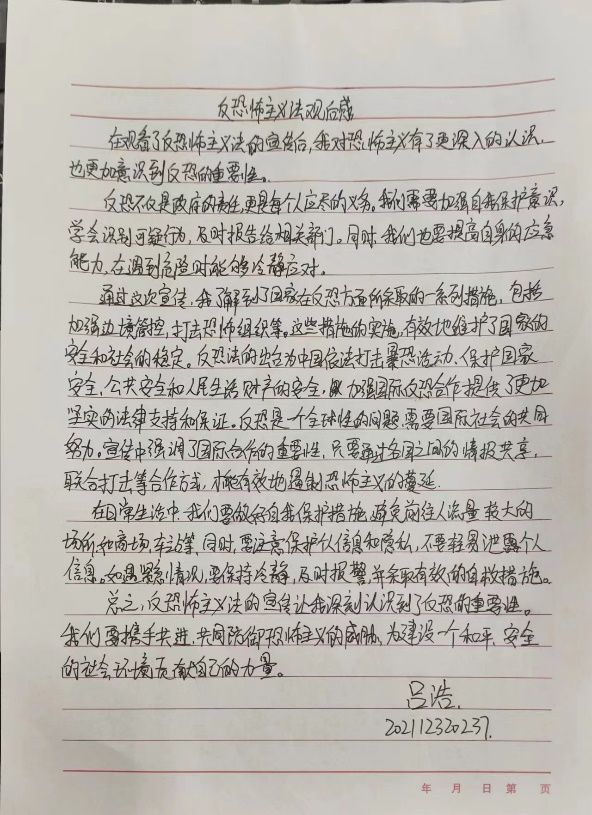 反恐怖主义法观后感
在观看了反恐怖主义法的宣传后,我对恐怖主义有了更深入的认识,
也更加意识到反恐的重要性。
反恐不仅是政府的责任,更是每个人应尽的义务。我们需要加强自我保护意识,
学会识别可疑行为,及时报告给相关部门。同时,我们也要提高自身的应急
能力,在遇到危险时能够冷静应对。
通过这次宣传,我了解到了国家在反恐方面所采取的一系列措施,包括
加强边境管控,打击恐怖组织等。这些措施的实施,有效地维护了国家的
安全和社会的稳定。反恐法的出台为中国依法打击暴恐活动、保护国家
安全,公共安全和人民生活财产的安全,加强国际反恐合作提供了更加
坚实的法律支持和保证。反恐是一个全球性的问题,需要国际社会的共同
努力。宣传中强调了国际合作的重要性,只要通过各国之间的情报共享,
联合打击等合作方式,才能有效地遏制恐怖主义的蔓延.
在日常生活中,我们要做好自我保护措施,避免前往人流量较大的
场所,如商场,车站等,同时,要注意保护个人信息和隐私,不要轻易泄露个人
信息。如遇紧急情况,要保持冷静,及时报警并采取有效的自救措施。
总之,反恐怖主义法的宣传让我深刻认识到了反恐的重要性。
我们要携手共进,共同防御恐怖主义的威胁,为建设一个和平、安全
的社会环境贡献自己的力量。
吕浩.
202112320237.
年 月 日 第 页